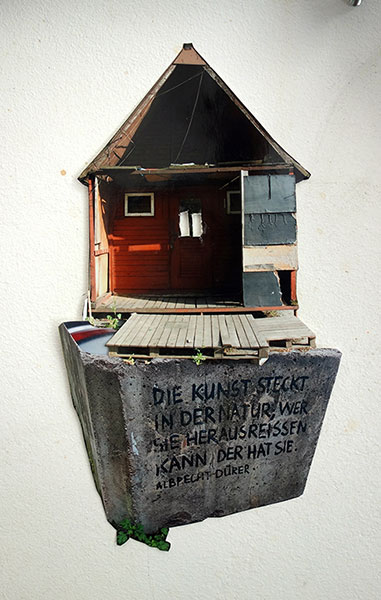 DIE KUNST STECKT
IN DER NATUR, WER
SIE HERAUSREISSEN
KANN, DER HAT SIE.
ALBRECHT DÜRER.